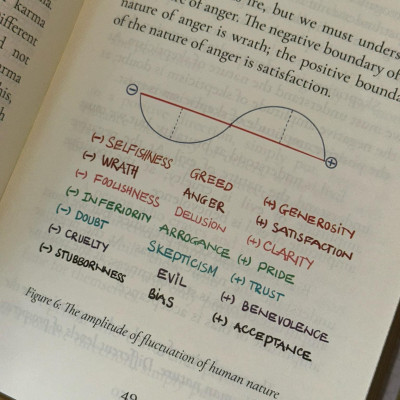 karma
ifferent
not
rma
his,
but we must unders
of anger. The negative boundary of
nature of anger is wrath; the positive bounda
of the nature of anger is satisfaction.
(-) SELFISHNESS GREED (+) GENEROSITY
(-) WRATH ANGER (+) SATISFACTION
(-) FOOLISHNESS DELUSION (+) CLARITY
(-) INFERIORITY ARROGANCE (+) PRIDE
(-) DOUBT SKEPTICISM (+) TRUST
(-) CRUELTY EVIL (+) BENEVOLENCE
(-) STUBBORNNESS BIAS (+) ACCEPTANCE
Figure 6: The amplitude of fluctuation of human nature
49